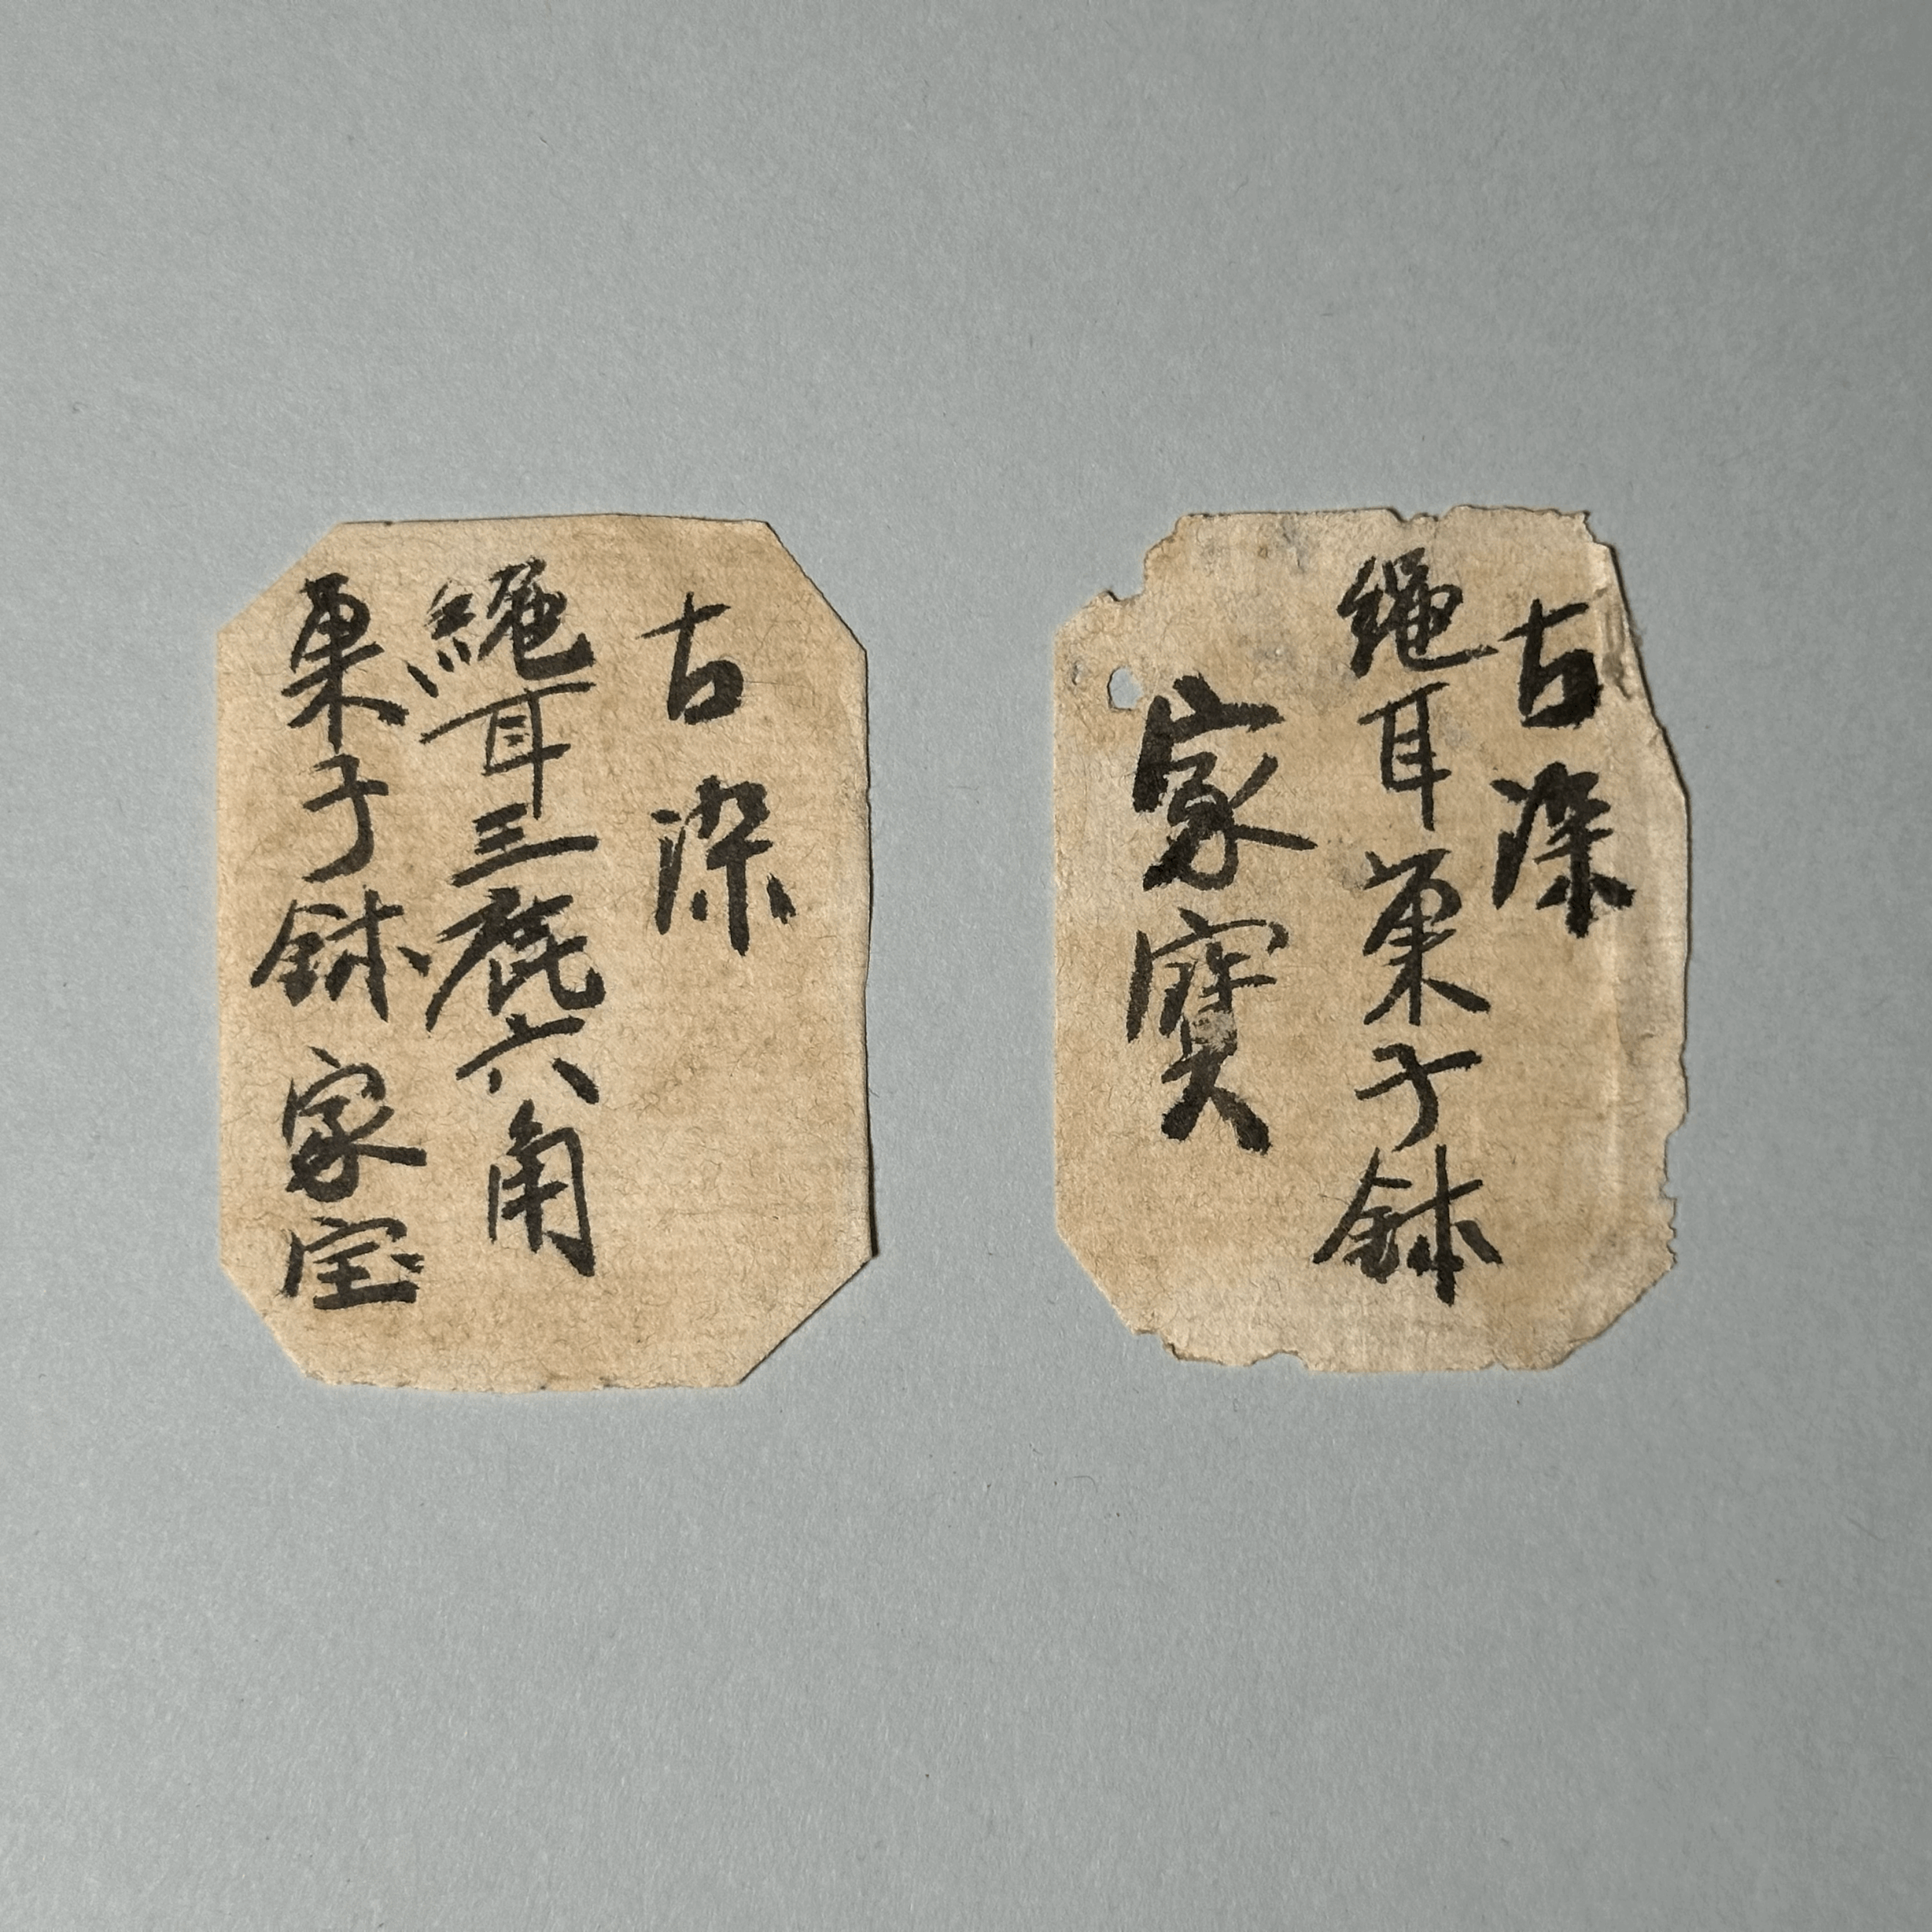 古染
繩耳三鹿六角
菓子鉢 家宝
古染
繩耳菓子鉢
家寳